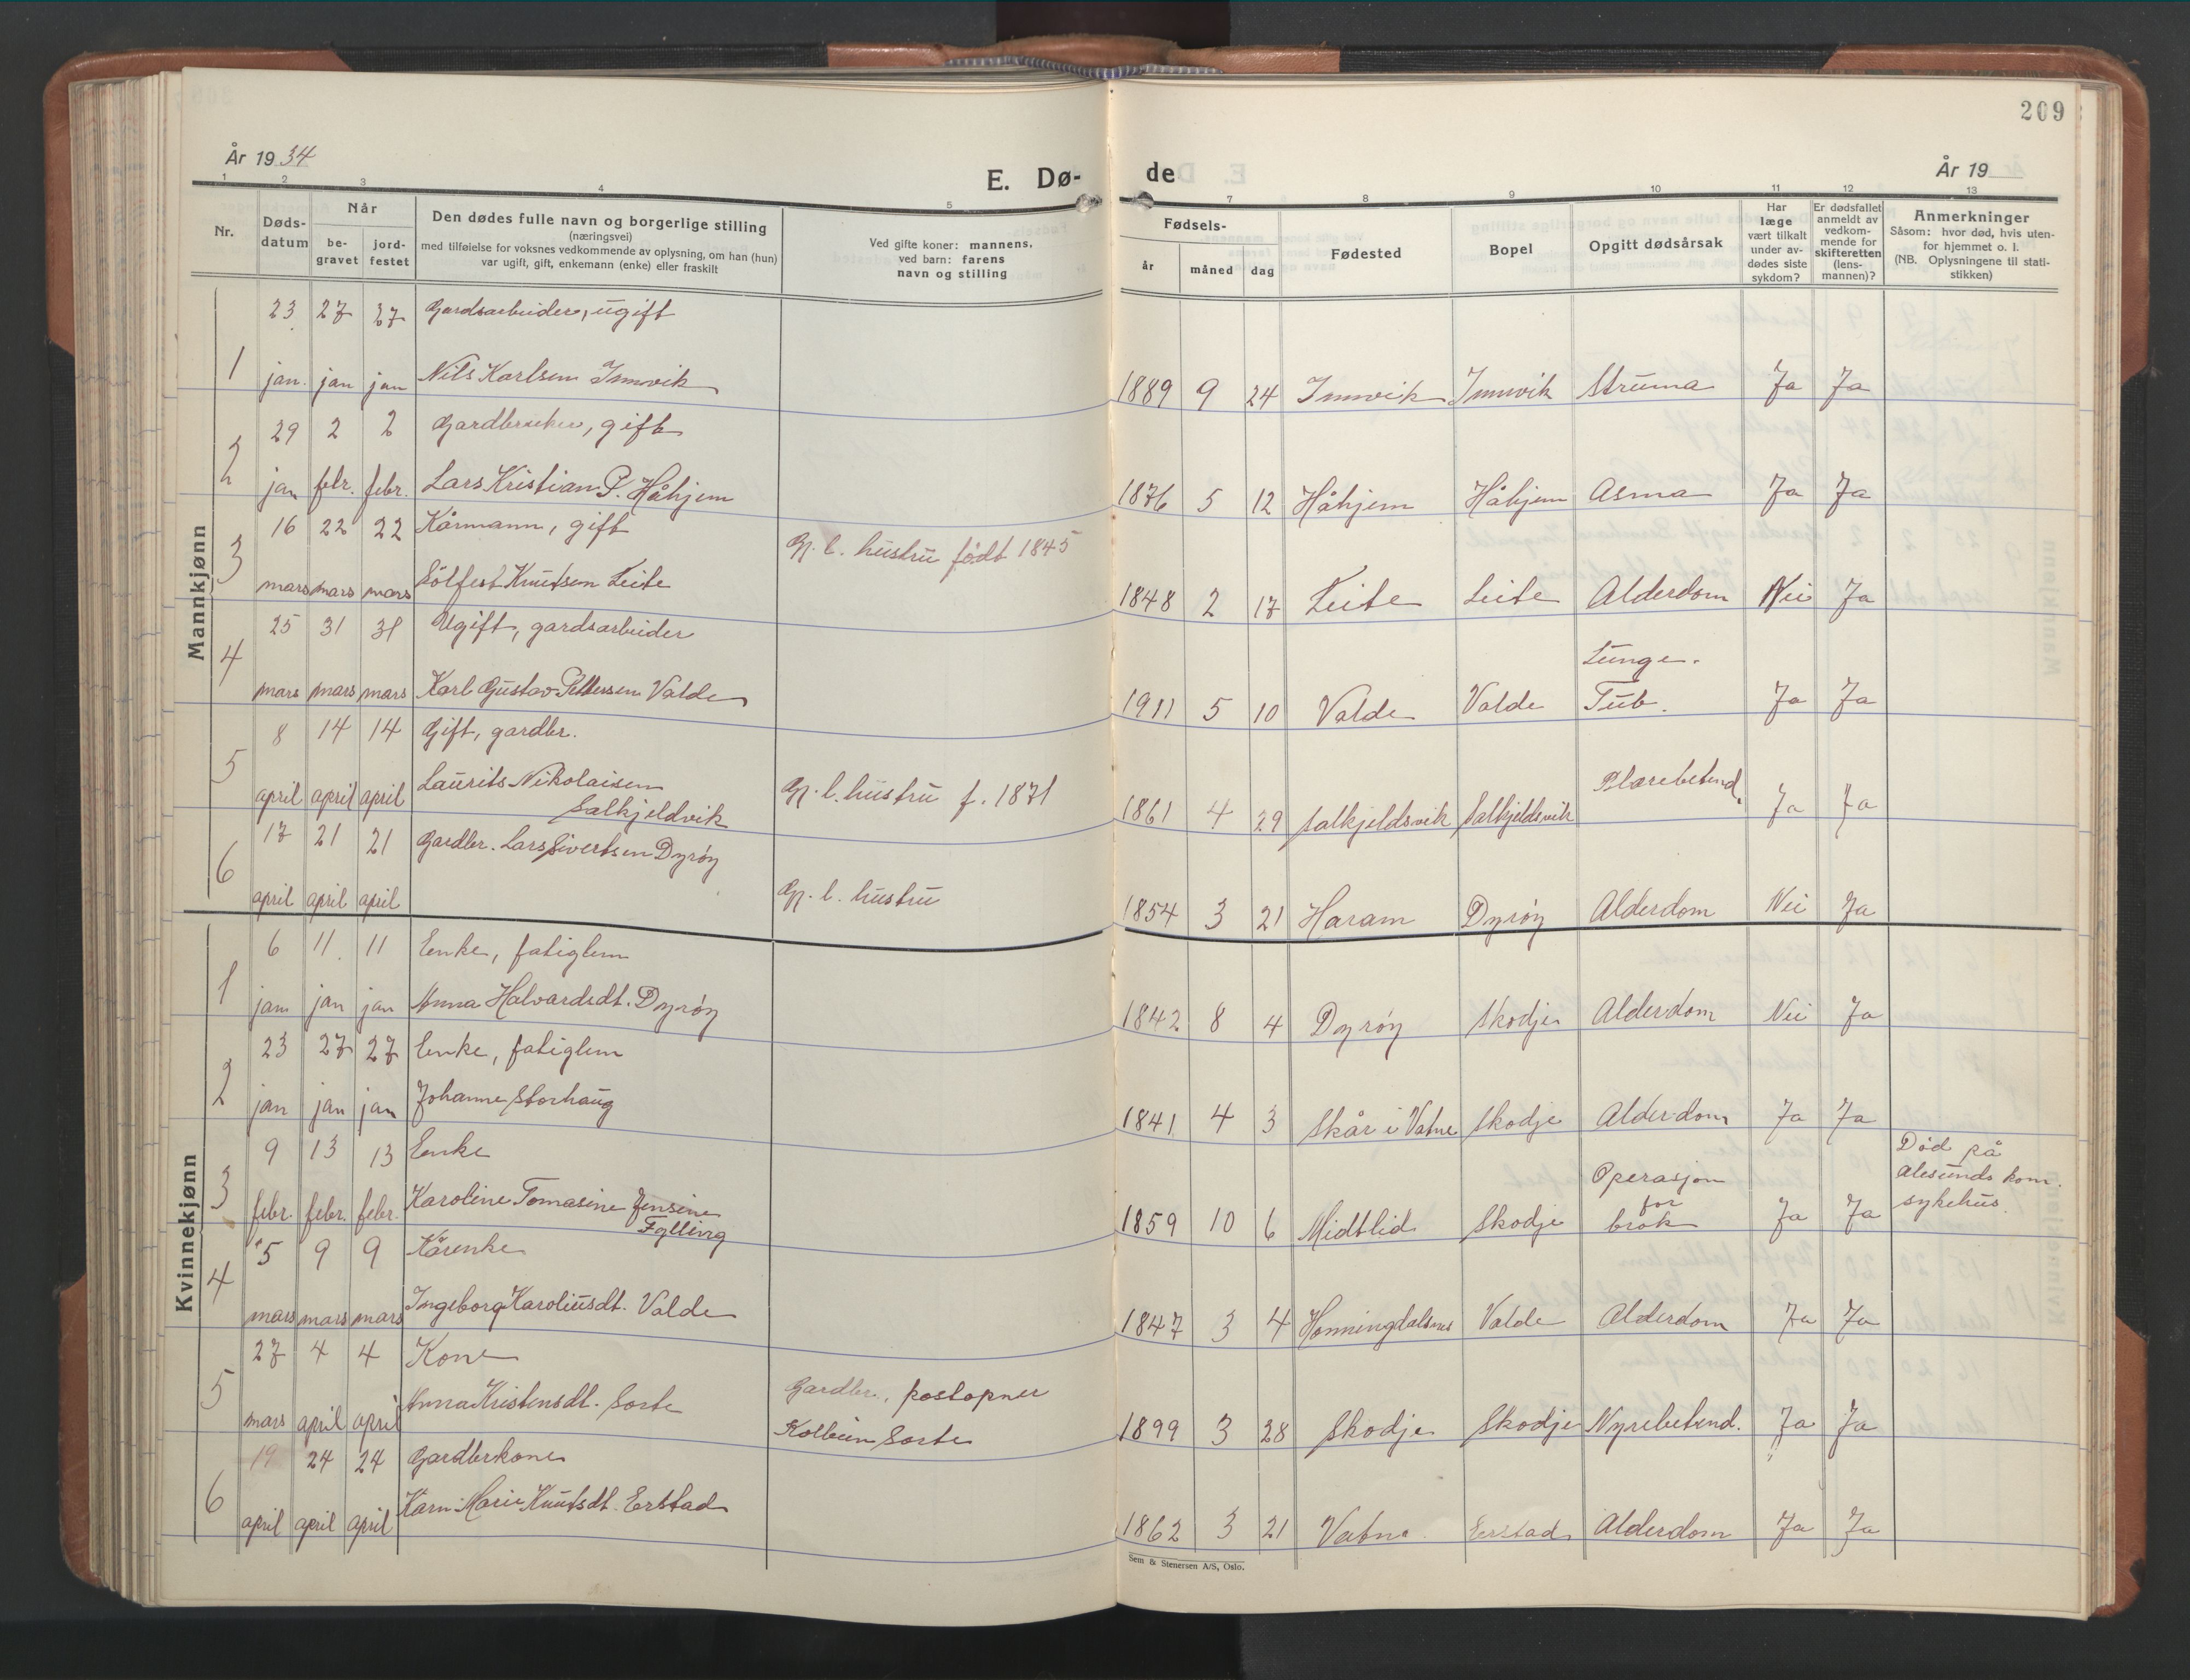 209
År 1934
E. Dø-
de
År 19
1 2 3 4 5 7 8 9 10 11 12 13
Nr.
Døds-
datum
Når
be-
gravet
jord-
festet
Den dødes fulle navn og borgerlige stilling
(næringsvei)
med tilføielse for voksnes vedkommende av oplysning, om han (hun)
var ugift, gift, enkemann (enke) eller fraskilt
Ved gifte koner: mannens,
ved barn: farens
navn og stilling
Fødsels-
år måned dag
Fødested
Bopel
Opgitt dødsårsak
Har
læge
vært tilkalt
under av-
dødes siste
sykdom?
Er dødsfallet
anmeldt av
vedkom-
mende for
skifteretten
(lens-
mannen)?
Anmerkninger
Såsom: hvor død, hvis uten-
for hjemmet o. l.
(NB. Oplysningene til stati-
stikken)
Mannkjønn
23 27 27 Gardsarbeider, ugift
1 jan. jan jan Nils Karlsen Innvik 1889 9 24 Innvik Innvik Struma Ja Ja
29 2 2 Gardbruker, gift
2 jan febr. febr. Lars Kristian P. Håhjem 1876 5 12 Håhjem Håhjem Asma Ja Ja
16 22 22 Kårmann, gift Gj. l. hustru født 1845
3 mars mars mars Sølfest Knutsen Leite 1848 2 17 Leite Leite Alderdom Nei Ja
25 31 31 Ugift, gardsarbeider Lunge.
4 mars mars mars Karl Gustav Pettersen Valde 1911 5 10 Valde Valde Tub. Ja Ja
8 14 14 Gift, gardbr.
5 april april april Laurits Nikolaisen
Salkjeldvik Gj. l. hustru f. 1871 1861 4 29 Salkjeldsvik Salkjeldsvik Blærebetend. Ja Ja
17 21 21 Gardbr. Lars Sivertsen Dyrøy
6 april april april Gj. l. hustru 1854 3 21 Haram Dyrøy Alderdom Nei Ja
Kvinnekjønn
6 11. 11 Enke, fatiglem
1 jan jan jan Anna Halvardsdt. Dyrøy 1842 8 4 Dyrøy Skodje Alderdom Nei Ja
23 27 27 Enke, fatiglem
2 jan jan jan Johanne Storhaug 1841 4 3 Skår i Vatne Skodje Alderdom Ja Ja
9 13 13 Enke
3 febr. febr. febr. Karoline Tomasine Jensine
Fylling 1859 10 6 Midtlid Skodje Operasjon
for
brok Ja Ja Død på
Alesunds kom.
sykehus.
5 9 9 Kårenke
4 mars mars mars Ingeborg Karoliusdt. Valde 1847 3 4 Honningdalsnes Valde Alderdom Ja Ja
27 4 4 Kone
5 mars april april Anna Kristensdt. Sorte Gardbr., postopner
Kolbein Sorte 1899 3 28 Skodje Skodje Nyrebetend. Ja Ja
19 24 24 Gardbrkone
6 april april april Karn Marie Knutsdt. Erstad 1862 3 21 Vatne Erstad Alderdom Ja Ja
Sem & Stenersen A/S, Oslo.